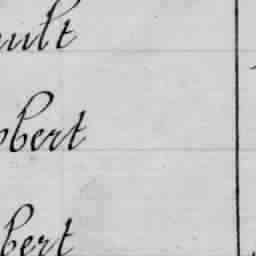 ult
obert
bert